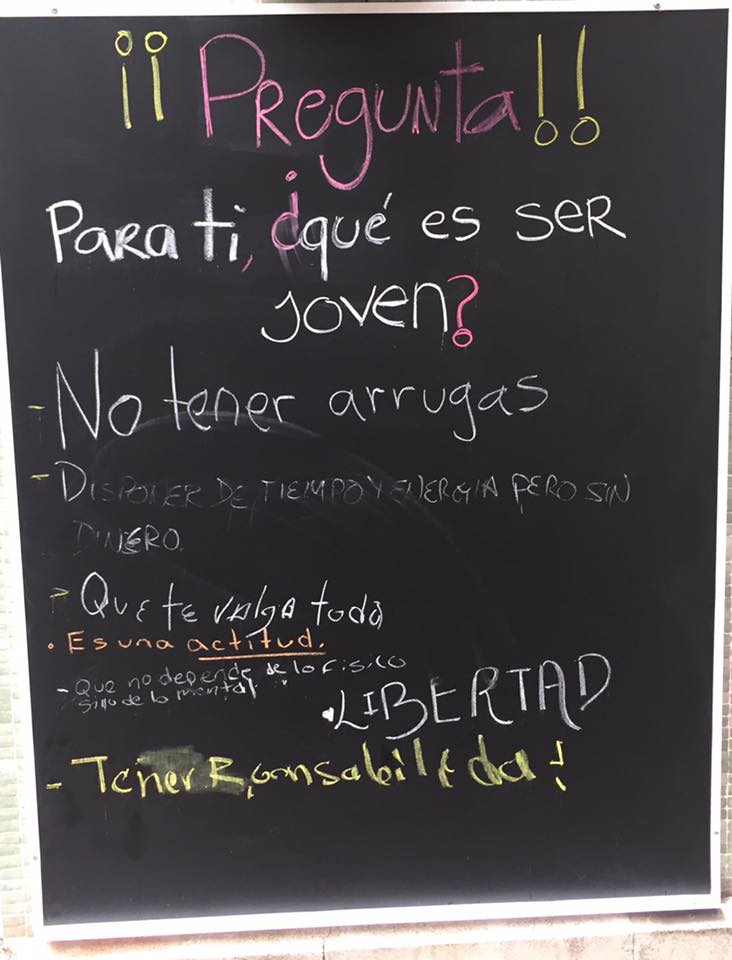 ¡¡Pregunta!!
Para ti, ¿qué es ser
joven?
- No tener arrugas
- DISPONER DE TIEMPO Y ENERGIA PERO SIN
DINERO.
- Que te valga todo
• Es una actitud.
- Que no depende de lo fisico
sino de lo mental
• LIBERTAD
- Tener R,onsabilida!